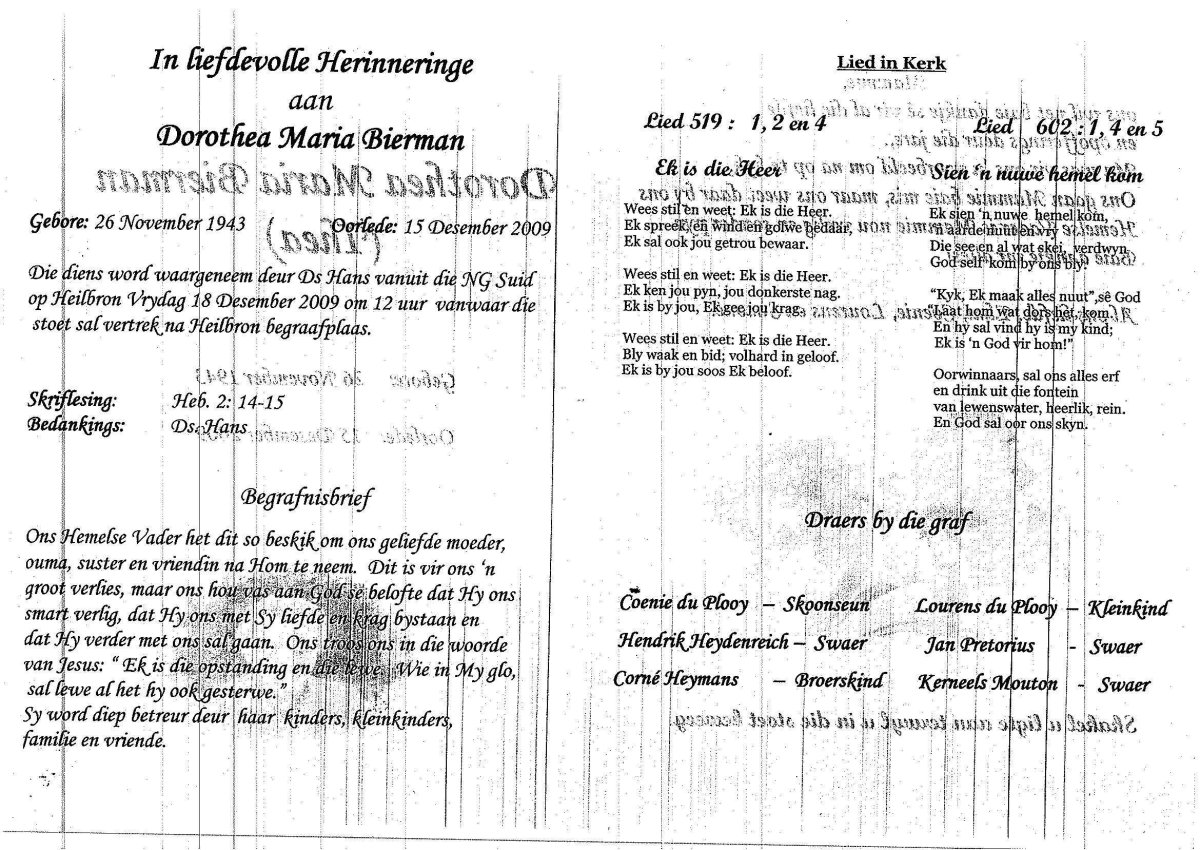 In liefdevolle Herinneringe
aan
Dorothea Maria Bierman
Gebore: 26 November 1943 Oorlede: 15 Desember 2009
Die diens word waargeneem deur Ds Hans vanuit die NG Suid
op Heilbron Vrydag 18 Desember 2009 om 12 uur vanwaar die
stoet sal vertrek na Heilbron begraafplaas.
Skriflesing: Heb. 2: 14-15
Bedankings: Ds. Hans
Begrafnisbrief
Ons Hemelse Vader het dit so beskik om ons geliefde moeder,
ouma, suster en vriendin na Hom te neem. Dit is vir ons ‘n
groot verlies, maar ons hou vas aan God se belofte dat Hy ons
smart verlig, dat Hy ons met Sy liefde en krag bystaan en
dat Hy verder met ons sal gaan. Ons troos ons in die woorde
van Jesus: “ Ek is die opstanding en die lewe. Wie in My glo,
sal lewe al het hy ook gesterwe.”
Sy word diep betreur deur haar kinders, kleinkinders,
familie en vriende.
Lied in Kerk
Lied 519 : 1, 2 en 4
Ek is die Heer
Wees stil en weet: Ek is die Heer.
Ek spreek, en wind en golwe bedaar,
Ek sal ook jou getrou bewaar.
Wees stil en weet: Ek is die Heer.
Ek ken jou pyn, jou donkerste nag.
Ek is by jou, Ek gee jou krag.
Wees stil en weet: Ek is die Heer.
Bly waak en bid; volhard in geloof.
Ek is by jou soos Ek beloof.
Lied 602 : 1, 4 en 5
Sien ‘n nuwe hemel kom
Ek sien ‘n nuwe hemel kom,
‘n aarde nuut en vry
Die see en al wat skei, verdwyn
God self kom by ons bly.
“Kyk, Ek maak alles nuut”,sê God
“Laat hom wat dors het, kom!
En hy sal vind hy is my kind;
Ek is ‘n God vir hom!”
Oorwinnaars, sal ons alles erf
en drink uit die fontein
van lewenswater, heerlik, rein.
En God sal oor ons skyn.
Draers by die graf
Coenie du Plooy – Skoonseun Lourens du Plooy – Kleinkind
Hendrik Heydenreich – Swaer Jan Pretorius - Swaer
Corné Heymans – Broerskind Kerneels Mouton - Swaer